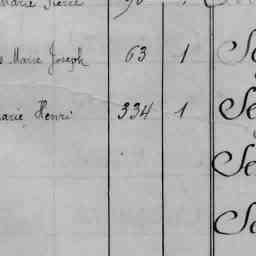 Marie Pierre 90 1
Marie Joseph 63 1 Se
Marie Henri 334 1 Se
Se
Se